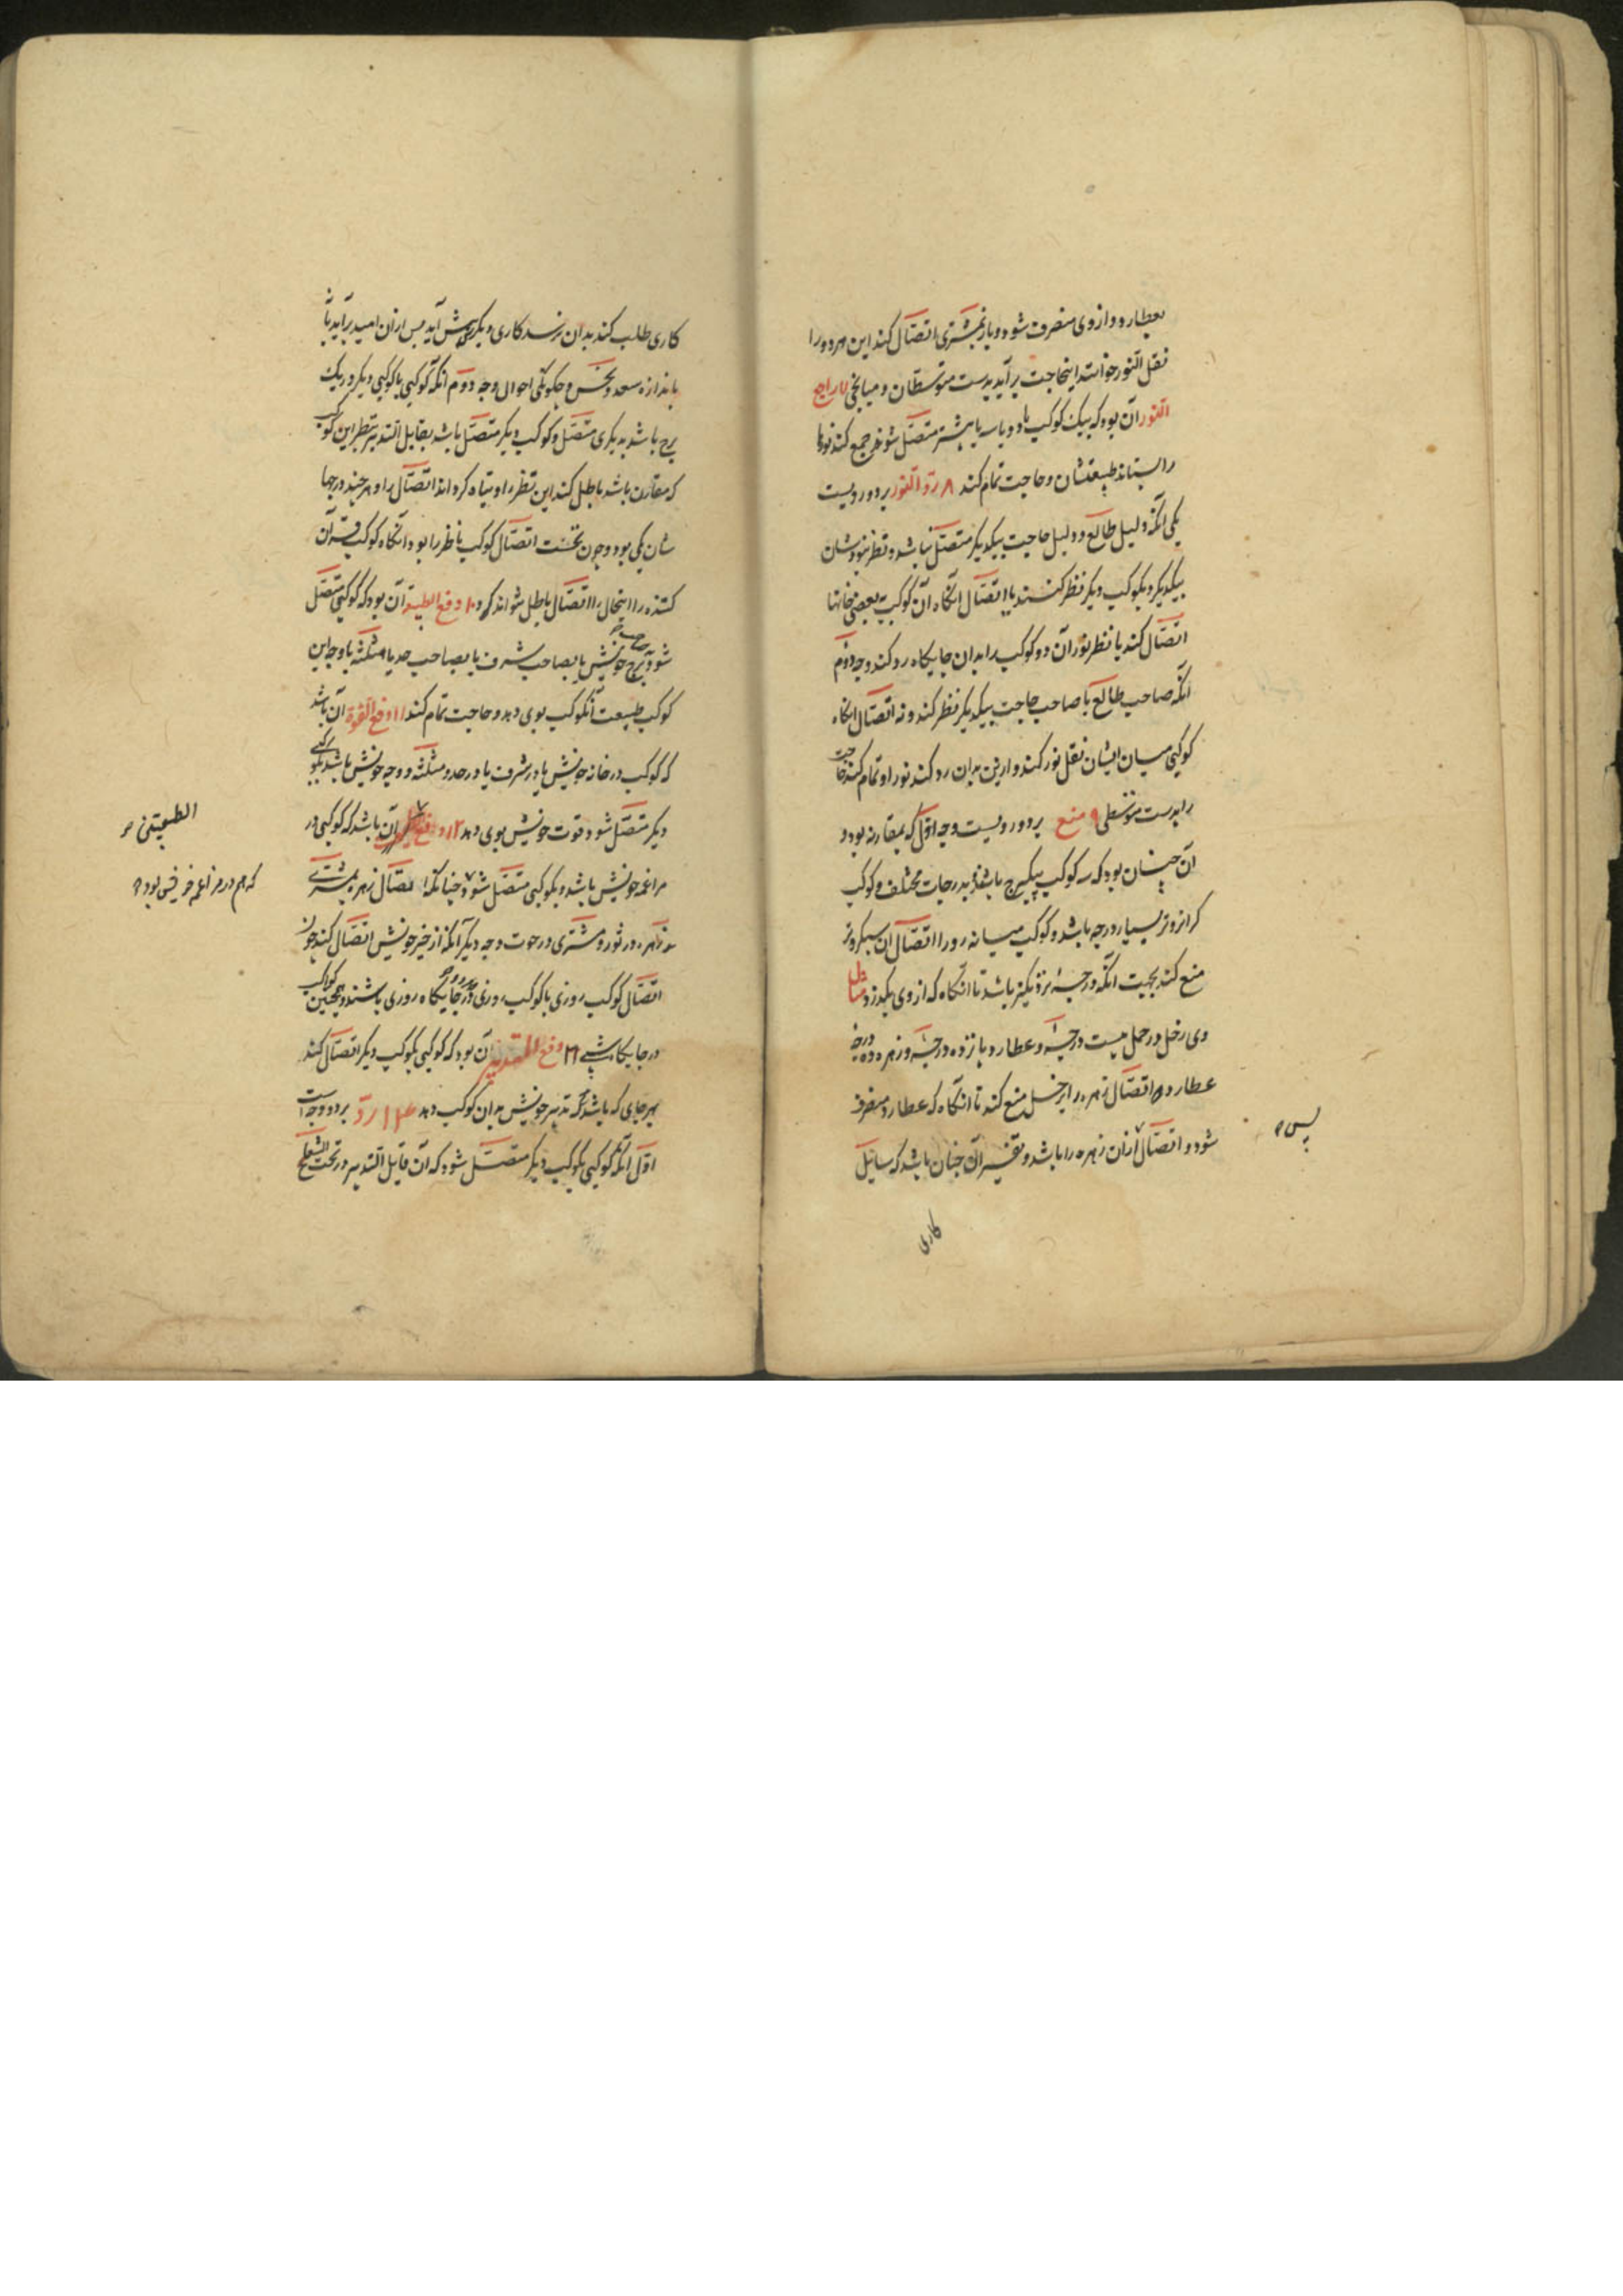 بعطارد و از وی منصرف شود و باز بمشتری اتصال کند این هر دو را
نقل النور خوانند اینحاجت برآید بدست متوسطان و میانجی ۷ اما جمع
النور آن بود که بیک کوکب دو و یا سه یا بیشتر متصل شوند جمع کند نورها
را بستاند طبیعتشان و حاجت تمام کند ۸ رد النور بر دو رویست
یکی آنکه دلیل طالع و دلیل حاجت بیکدیگر متصل نباشد و نظر نبودشان
بیکدیگر و بکوکب دیگر نظر کنند یا اتصال آنگاه آن کوکب ببعضی خانها
اتصال کند یا نظر نور آن دو کوکب را بدان جایگاه رد کند وجه دوم
آنکه صاحب طالع با صاحب حاجت بیکدیگر نظر کند و نه اتصال آنگاه
کوکبی میان ایشان نقل نور کند و ازین بدان رد کند نور او تمام کند حاجت
را بدست متوسطی ۹ منع بر دو رویست وجه اول که بمقارنه بود و
آن چنان بود که سه کوکب بیکبرج باشند بدرجات مختلف و کوکب
گرانروتر بسیار درجه باشد و کوکب میانه رو را اتصال آن سبکروتر
منع کند بجهت آنکه درجه نزدیکتر باشد تا آنگاه که از وی بگذرد مثال
وی زحل در حمل بیست درجه و عطارد پانزده درجه و زهره ده درجه
عطارد اتصال زهره را بزحل منع کند تا آنگاه که عطارد منصرف
شود و اتصال از آن زهره را باشد و تفسیر آن چنان باشد که سائل
پس
کاری
کاری طلب کند بدان نرسد کاری دیگر پیش آید پس از آن امید برآید یا نه
باندازه سعد و نحس و چگونگی احوال وجه دوم آنکه کوکبی با کوکبی دیگر در یک
برج باشد بدیگری متصل و کوکب دیگر متصل باشد بقابل التدبیر بنظر این کوکب
که مقارن باشد باطل کند این نظر او تباه گرداند اتصال را و هر چند درجها
شان یکی بود و چون نخست اتصال کوکب ناظر را بود و آنگاه کوکب قرآن
کننده را اینحال را اتصال باطل تواند کرد ۱۰ دفع الطبیعة آن بود که کوکبی متصل
شود بصاحب برج خویش یا بصاحب شرف یا بصاحب حد یا مثلثه یا وجه این
کوکب طبیعت آنکوکب بوی دهد و حاجت تمام کند ۱۱ دفع القوة آن باشد
که کوکب در خانه خویش یا در شرف یا در حد و مثلثه و وجه خویش باشد بکوکبی
دیگر متصل شود قوت خویش بوی دهد ۱۲ دفع آن باشد که کوکبی در
مزاعمه خویش باشد و بکوکبی متصل شود چنانکه اتصال زهره بمشتری
و زهره در ثور و مشتری در حوت وجه دیگر آنکه از حیز خویش اتصال کند چون
اتصال کوکب روزی با کوکب روزی و در جایگاه روزی باشند و همچنین کواکب
در جایگاه شبی ۱۳ دفع التدبیر آن بود که کوکبی بکوکب دیگر اتصال کند
بهر جای که باشد که تدبیر خویش بدان کوکب دهد ۱۴ رد بر دو وجه است
اول آنکه کوکبی بکوکب دیگر متصل شود که آن قابل التدبیر در تحت الشعاع
الطبیعتین
که هم در مزاعمه خویش بود